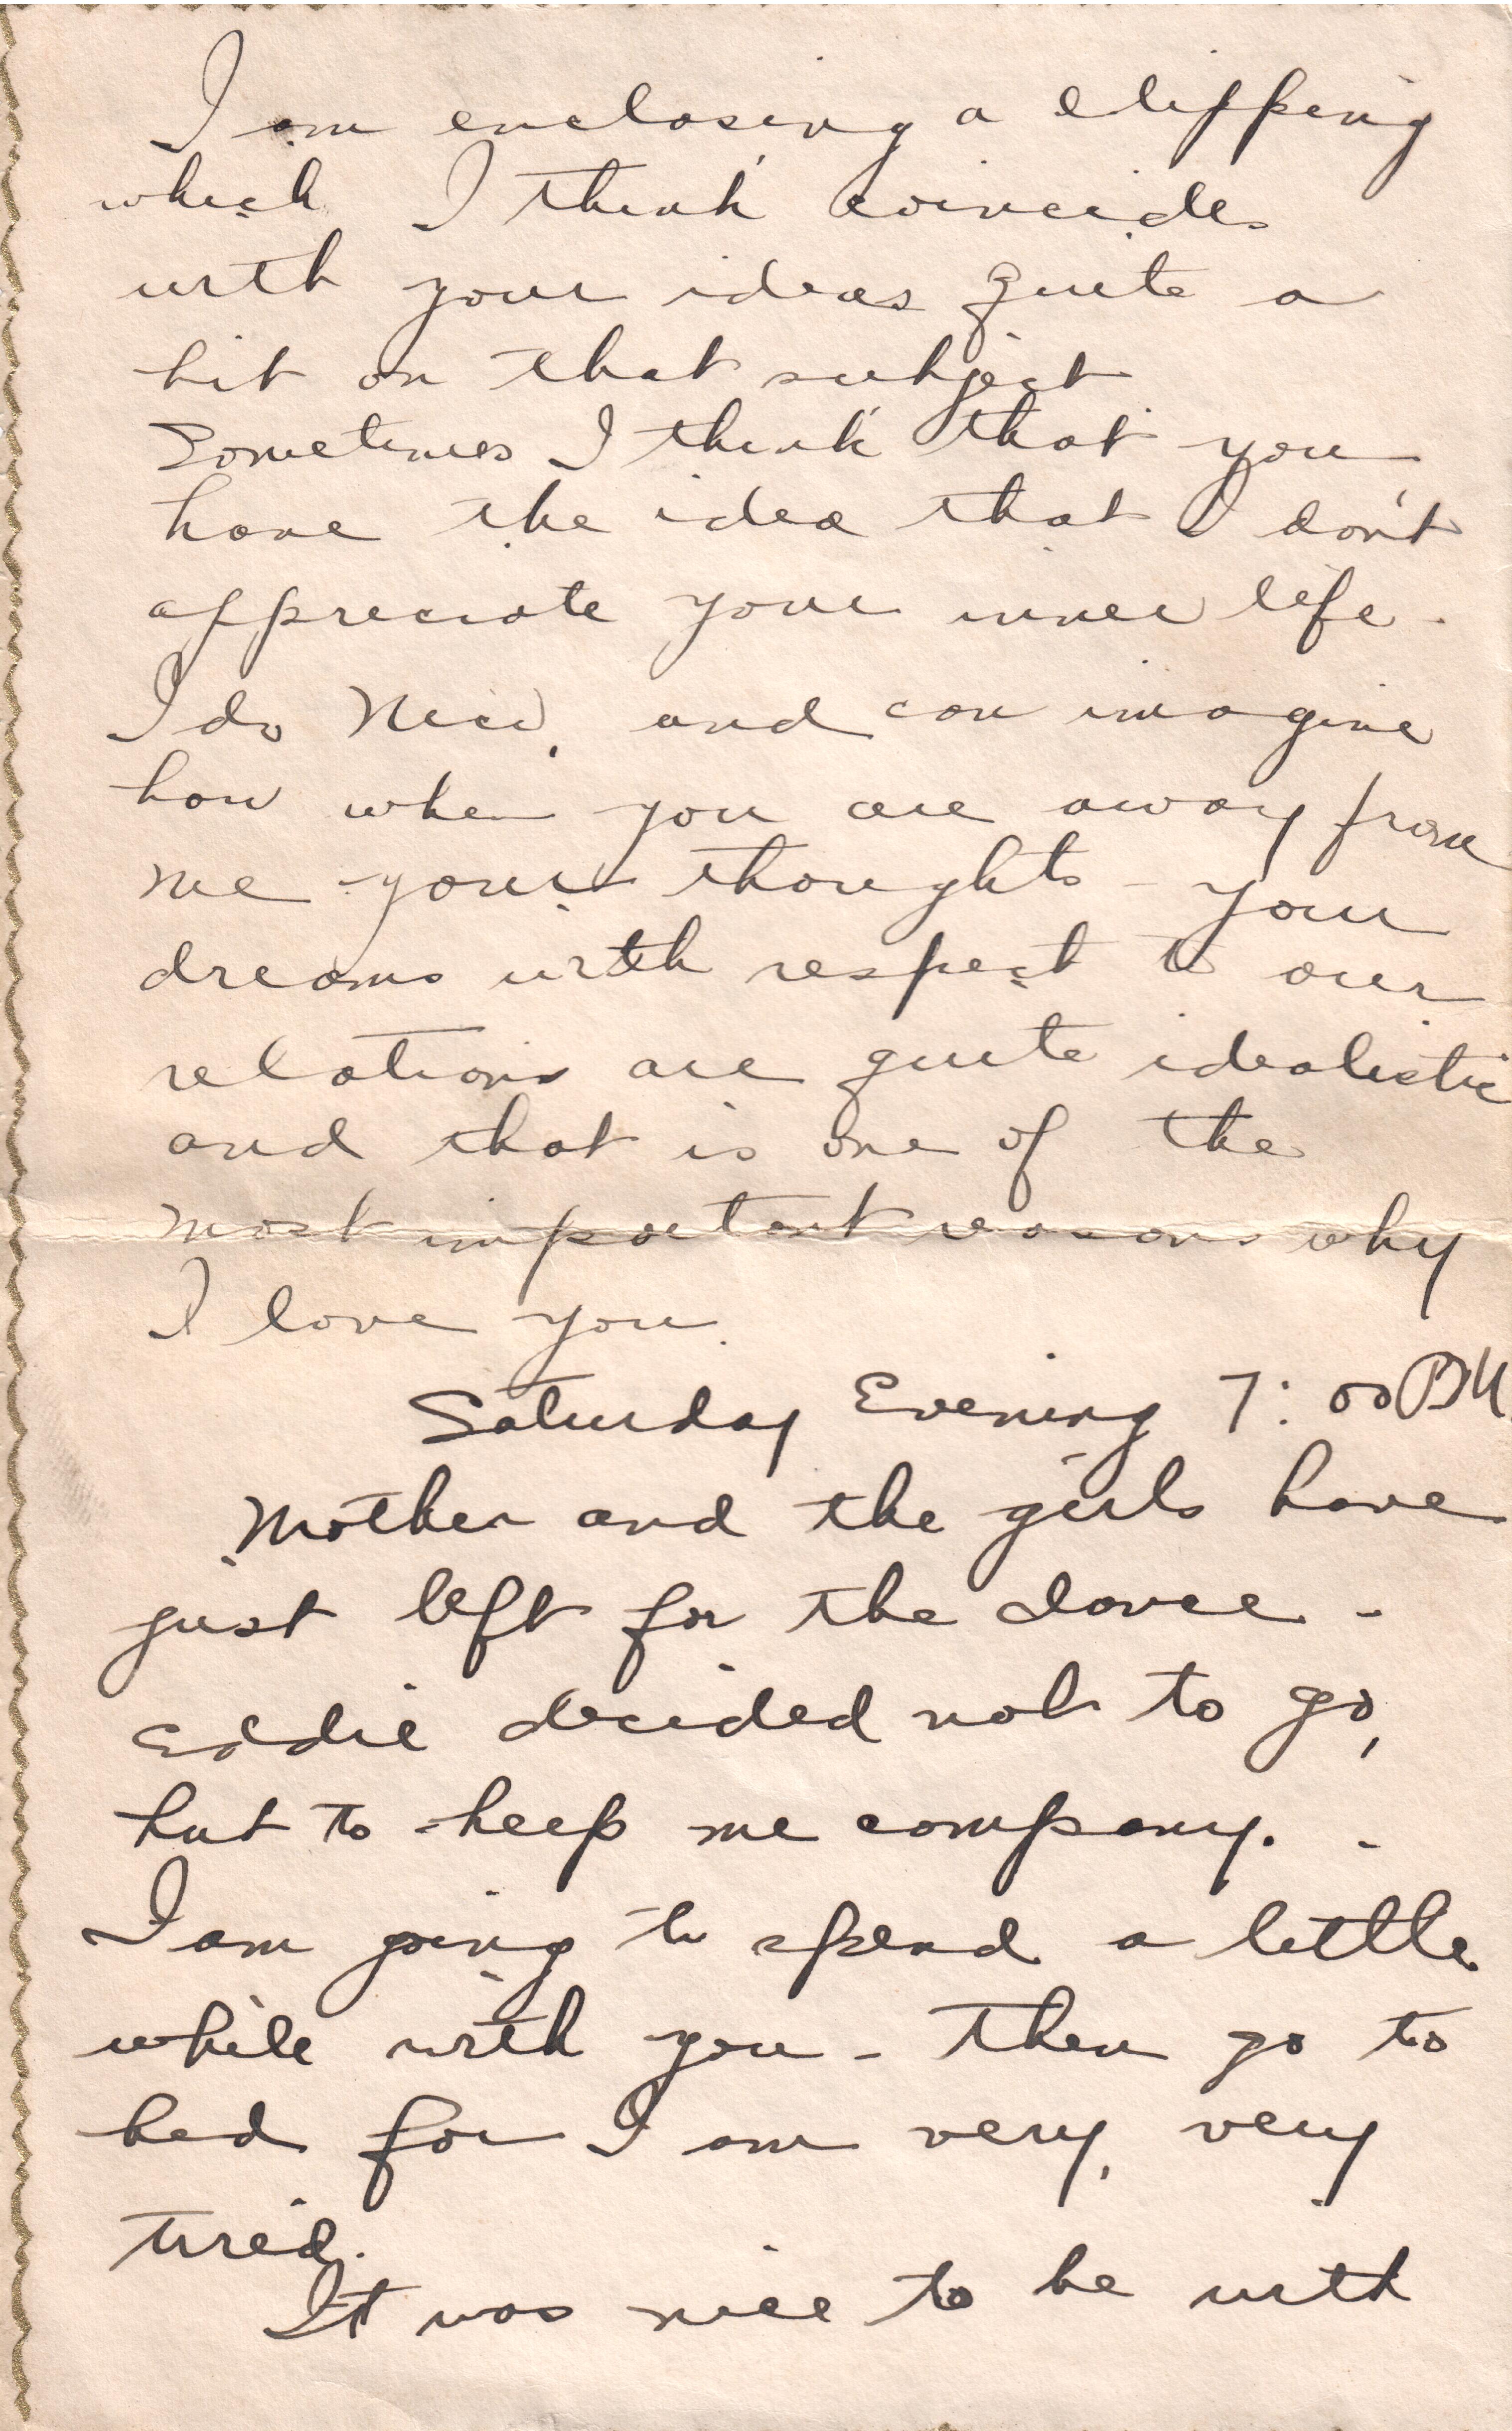 I am enclosing a clipping
which I think coincides
with your ideas quite a
bit on that subject
Sometimes I think that you
have the idea that I don't
appreciate your inner life.
I do and can imagine
how when you are away from
me - your thoughts - your
dreams with respect to our
relations are quite idealistic
and that is one of the
most important reasons why
I love you.
Saturday Evening 7:00 PM
Mother and the girls have
just left for the dance -
Eddie decided not to go,
but to keep me company. -
I am going to spend a little
while with you - then go to
bed for I am very, very
tired.
It was nice to be with